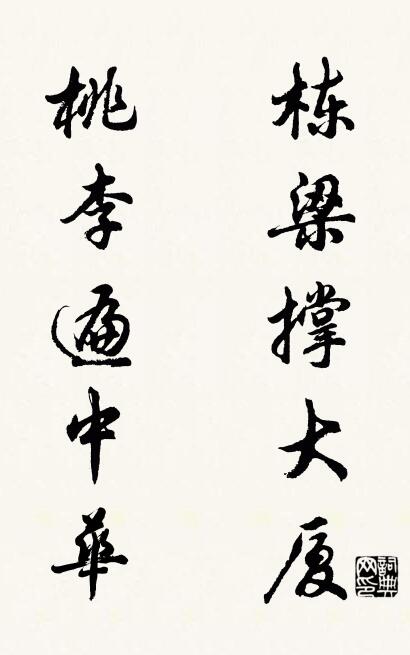 栋梁撑大厦
桃李遍中華
詞典網印